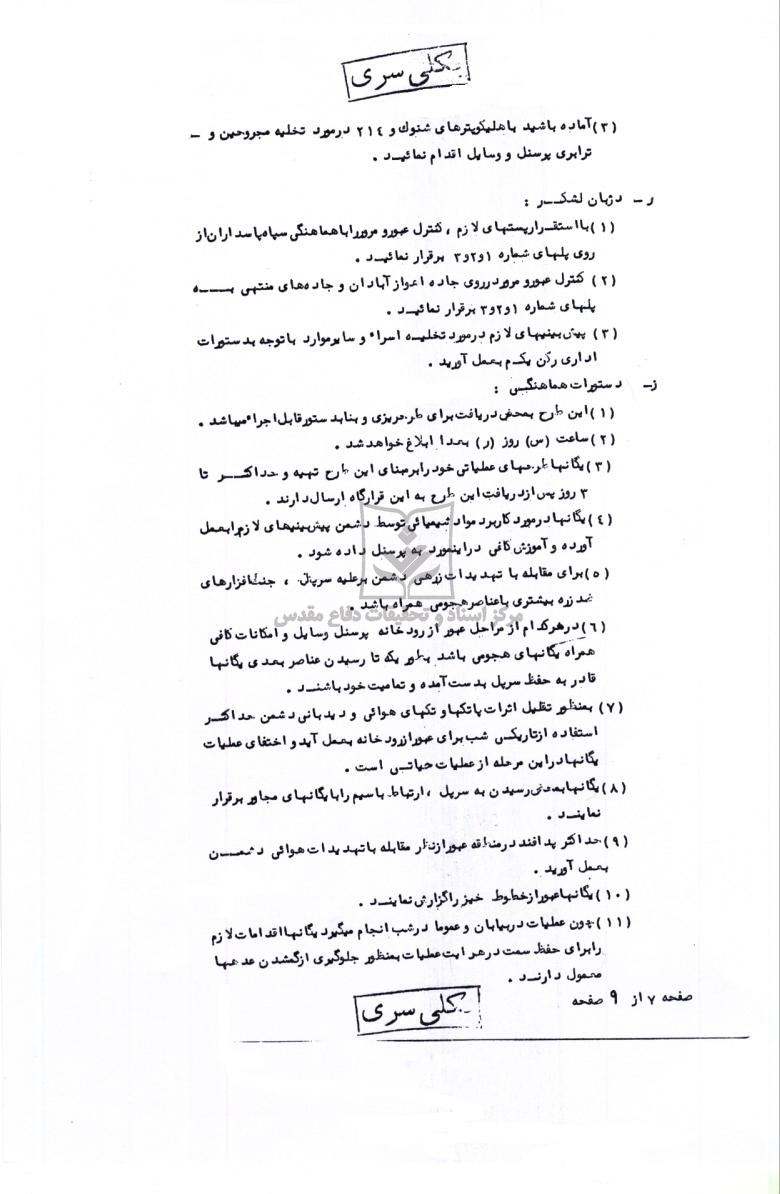 بکلی سری
(۳) آماده باشید با هلیکوپترهای شنوك و ۲۱٤ درمورد تخلیه مجروحین و -
ترابری پرسنل و وسایل اقدام نمائید .
ر - دژبان لشکر :
(۱) با استقرار پستهای لازم ، کنترل عبور و مرور را با هماهنگی سپاه پاسداران از
روی پلهای شماره ۱ و ۲ و ۳ برقرار نمائید .
(۲) کنترل عبور و مرور در روی جاده اهواز آبادان و جاده‌های منتهی به
پلهای شماره ۱ و ۲ و ۳ برقرار نمائید .
(۳) پیش بینیهای لازم درمورد تخلیه اسراء و سایر موارد با توجه بدستورات
اداری رکن یکم بعمل آورید .
ز- دستورات هماهنگی :
(۱) این طرح بمحض دریافت برای طرحریزی و بنا بدستور قابل اجراء میباشد .
(۲) ساعت (س) روز (ر) بعدا ابلاغ خواهد شد .
(۳) یگانها طرحهای عملیاتی خود را برمبنای این طرح تهیه و حداکثر تا
۳ روز پس از دریافت این طرح به این قرارگاه ارسال دارند .
(٤) یگانها درمورد کاربرد مواد شیمیائی توسط دشمن پیش بینیهای لازم را بعمل
آورده و آموزش کافی در اینمورد به پرسنل داده شود .
(٥) برای مقابله با تهدیدات زرهی دشمن برعلیه سرپل ، جنگ‌افزارهای
ضد زره بیشتری با عناصر هجومی همراه باشد .
مرکز اسناد و تحقیقات دفاع مقدس
(٦) در هرکدام از مراحل عبور از رودخانه پرسنل وسایل و امکانات کافی
همراه یگانهای هجومی باشد بطوریکه تا رسیدن عناصر بعدی یگانها
قادر به حفظ سرپل بدست آمده و تمامیت خود باشند .
(۷) بمنظور تقلیل اثرات پاتکها و تکهای هوائی و دیدبانی دشمن حداکثر
استفاده از تاریکی شب برای عبور از رودخانه بعمل آید و اختفای عملیات
یگانها در این مرحله از عملیات حیاتی است .
(۸) یگانها بمحض رسیدن به سرپل ، ارتباط با سیم را با یگانهای مجاور برقرار
نمایند .
(۹) حداکثر پدافند در منطقه عبور از نظر مقابله با تهدیدات هوائی دشمن
بعمل آورید .
(۱۰) یگانها عبور از خطوط خیز را گزارش نمایند .
(۱۱) چون عملیات در بیابان و عموما در شب انجام میگیرد یگانها اقدامات لازم
را برای حفظ سمت در هدایت عملیات بمنظور جلوگیری از گمشدن عده‌ها
معمول دارند .
صفحه ۷ از ۹ صفحه
بکلی سری